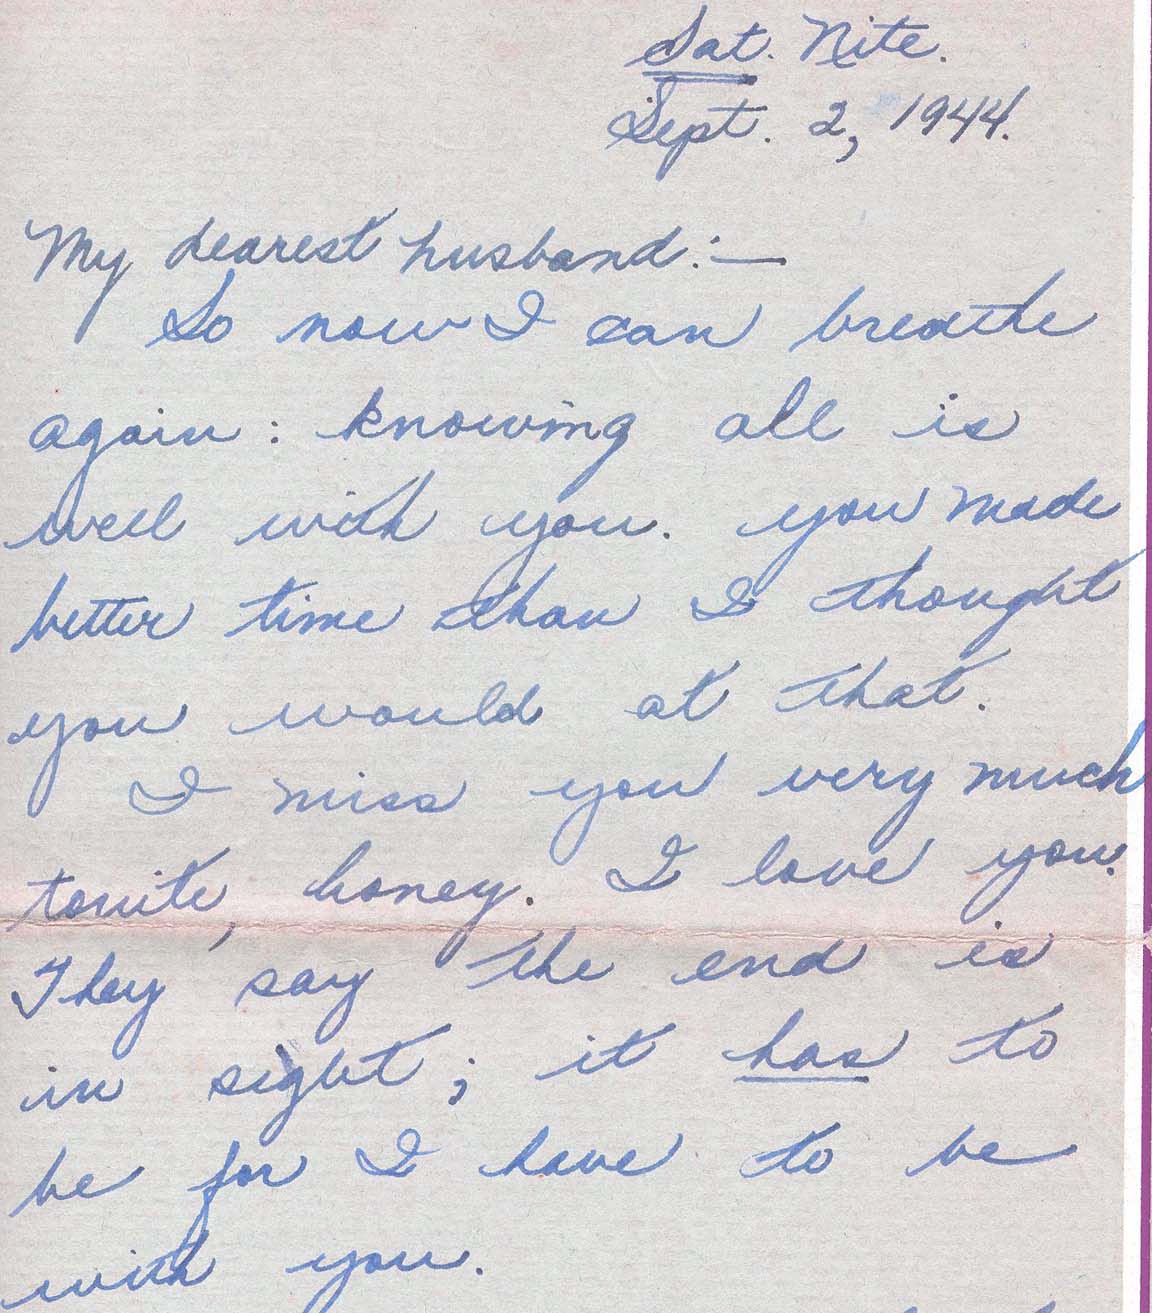 Sat. Nite.
Sept. 2, 1944.
My dearest husband:—
So now I can breathe
again: knowing all is
well with you. you made
better time than I thought
you would at that.
I miss you very much
tonite, honey. I love you.
They say the end is
in sight; it has to
be for I have to be
with you.